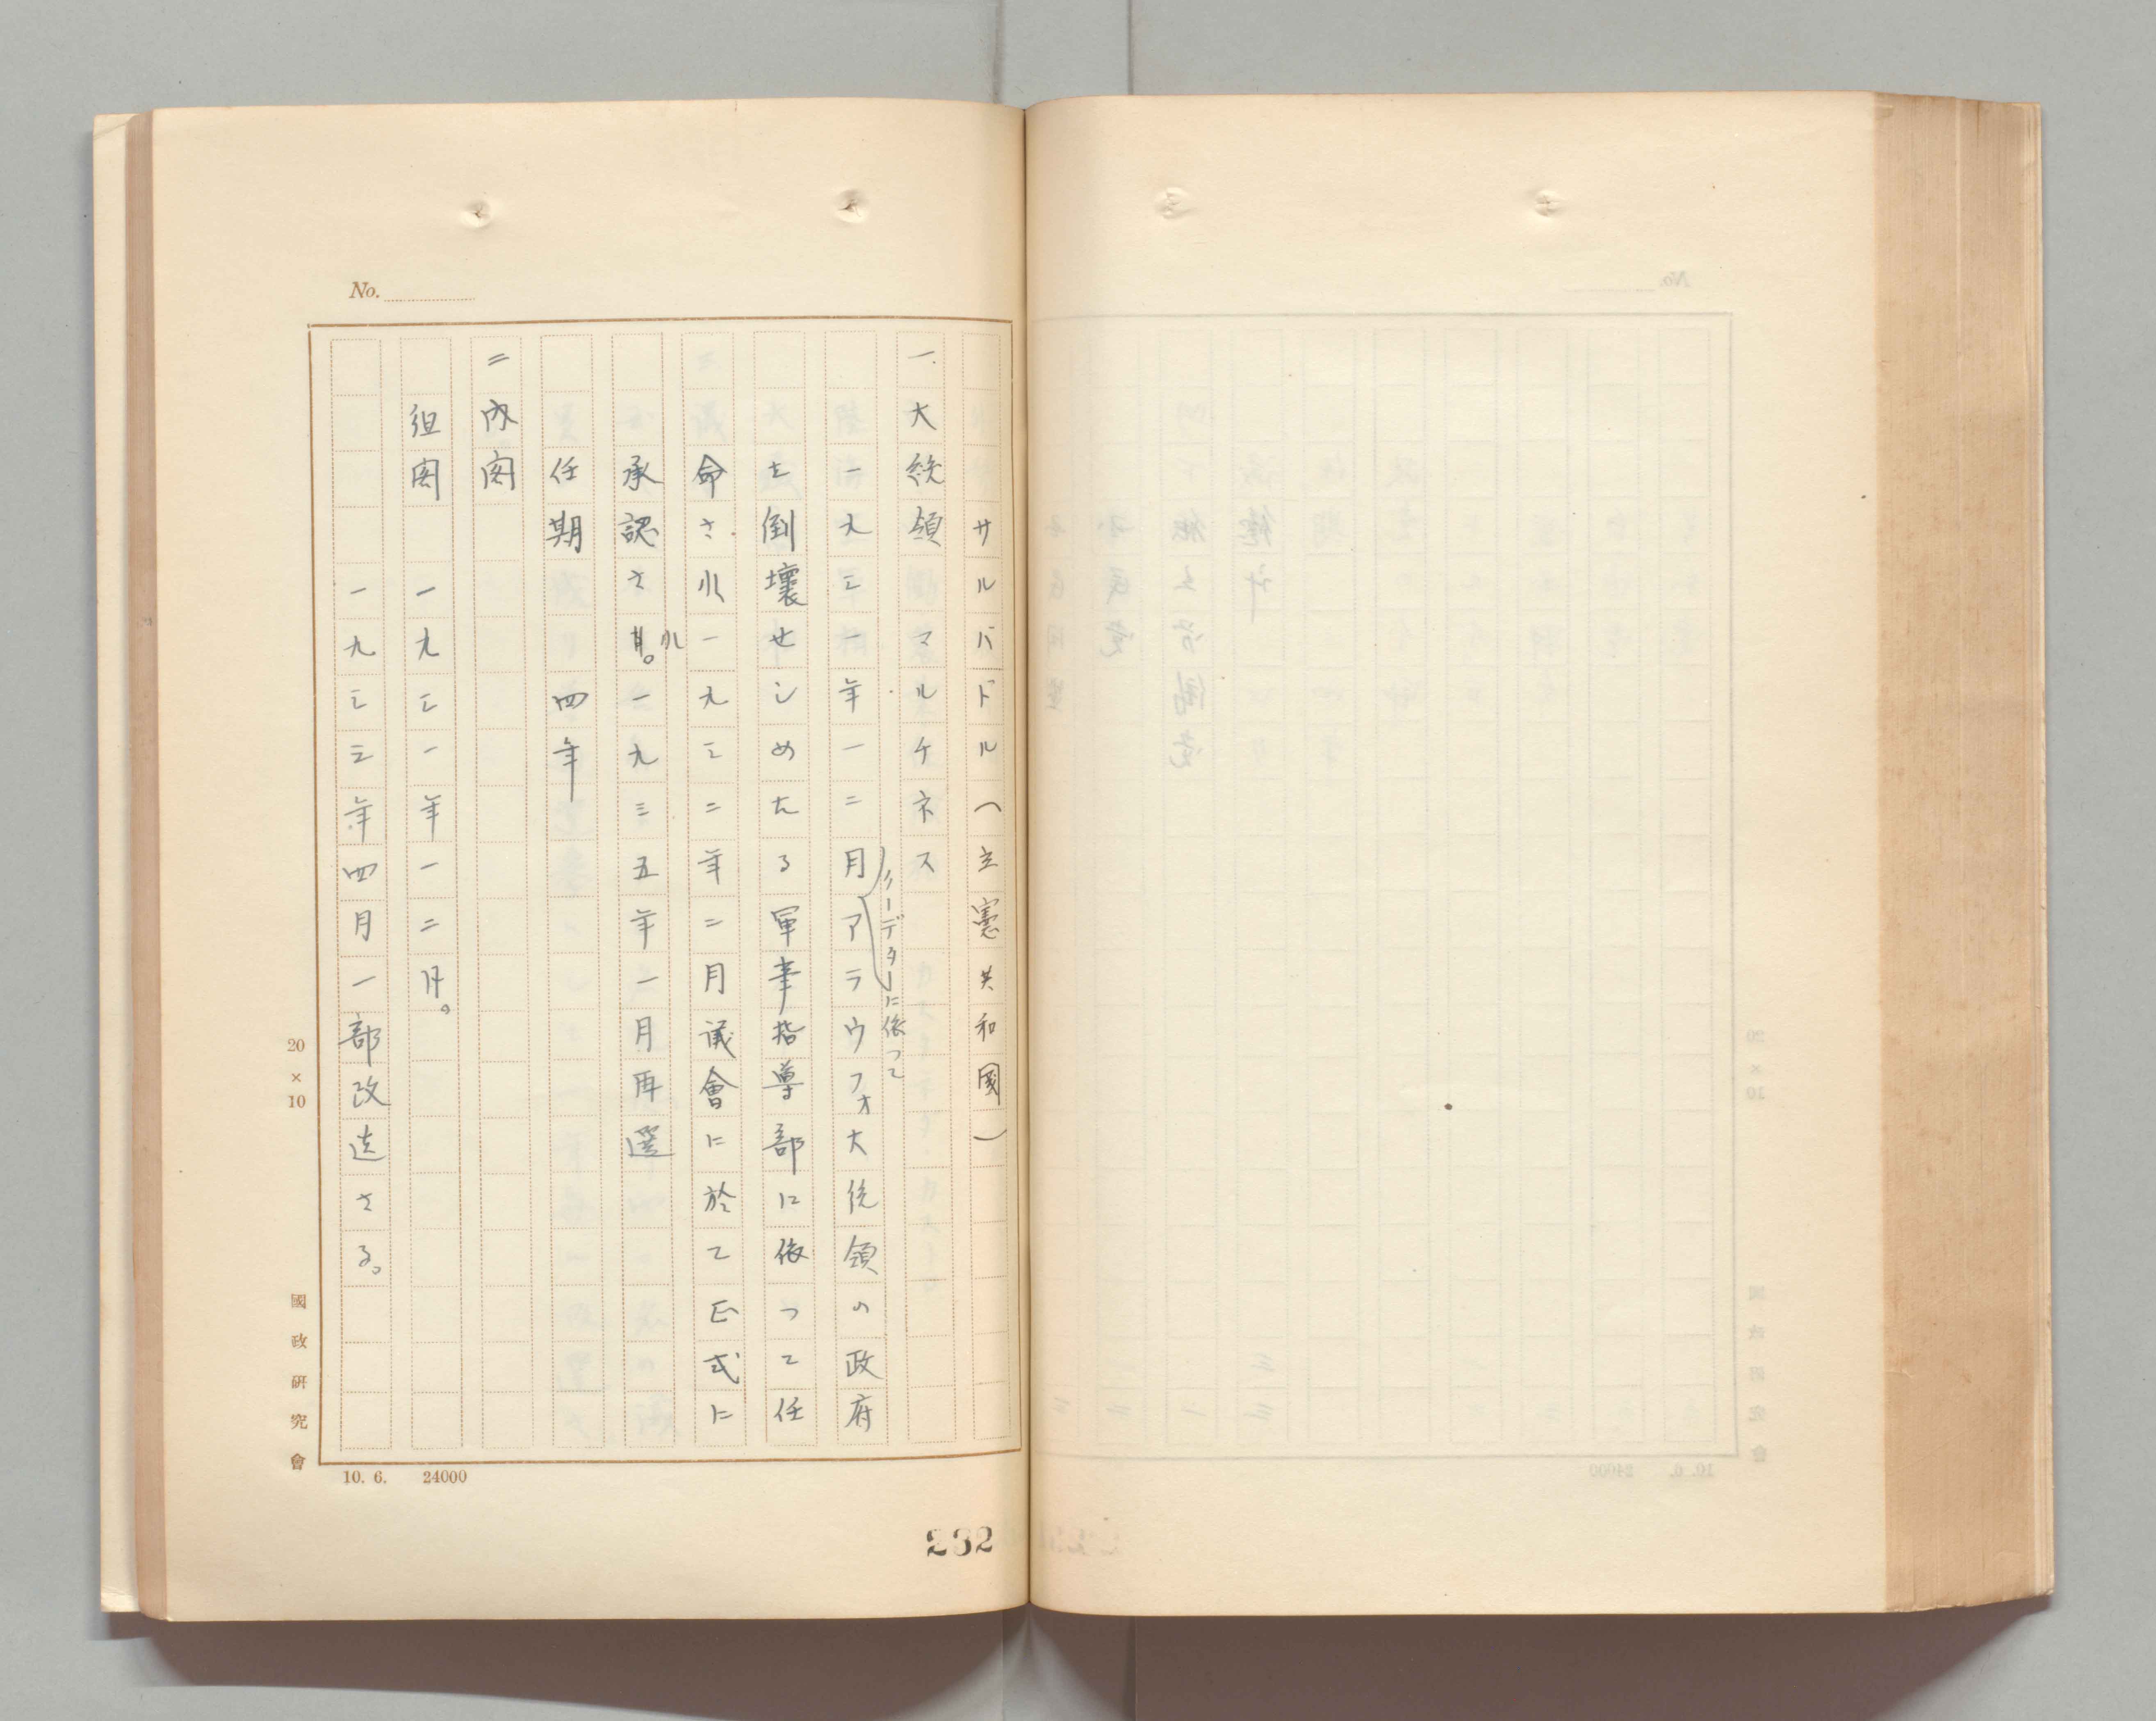 No.
サルバドル（立憲共和國）
一.大統領　マルケネス
一九三一年一二月クーデターに依つてアラウフオ大統領の政府
を倒壊せしめたる軍事指導部に依つて任
命され一九三二年二月議會に於て正式に
承認され其。一九三五年一月再選
任期　四年
二内閣
組閣　一九三一年一二月。
一九三三年四月一部改造さる。
20×10
國政研究會
10. 6.　24000
232